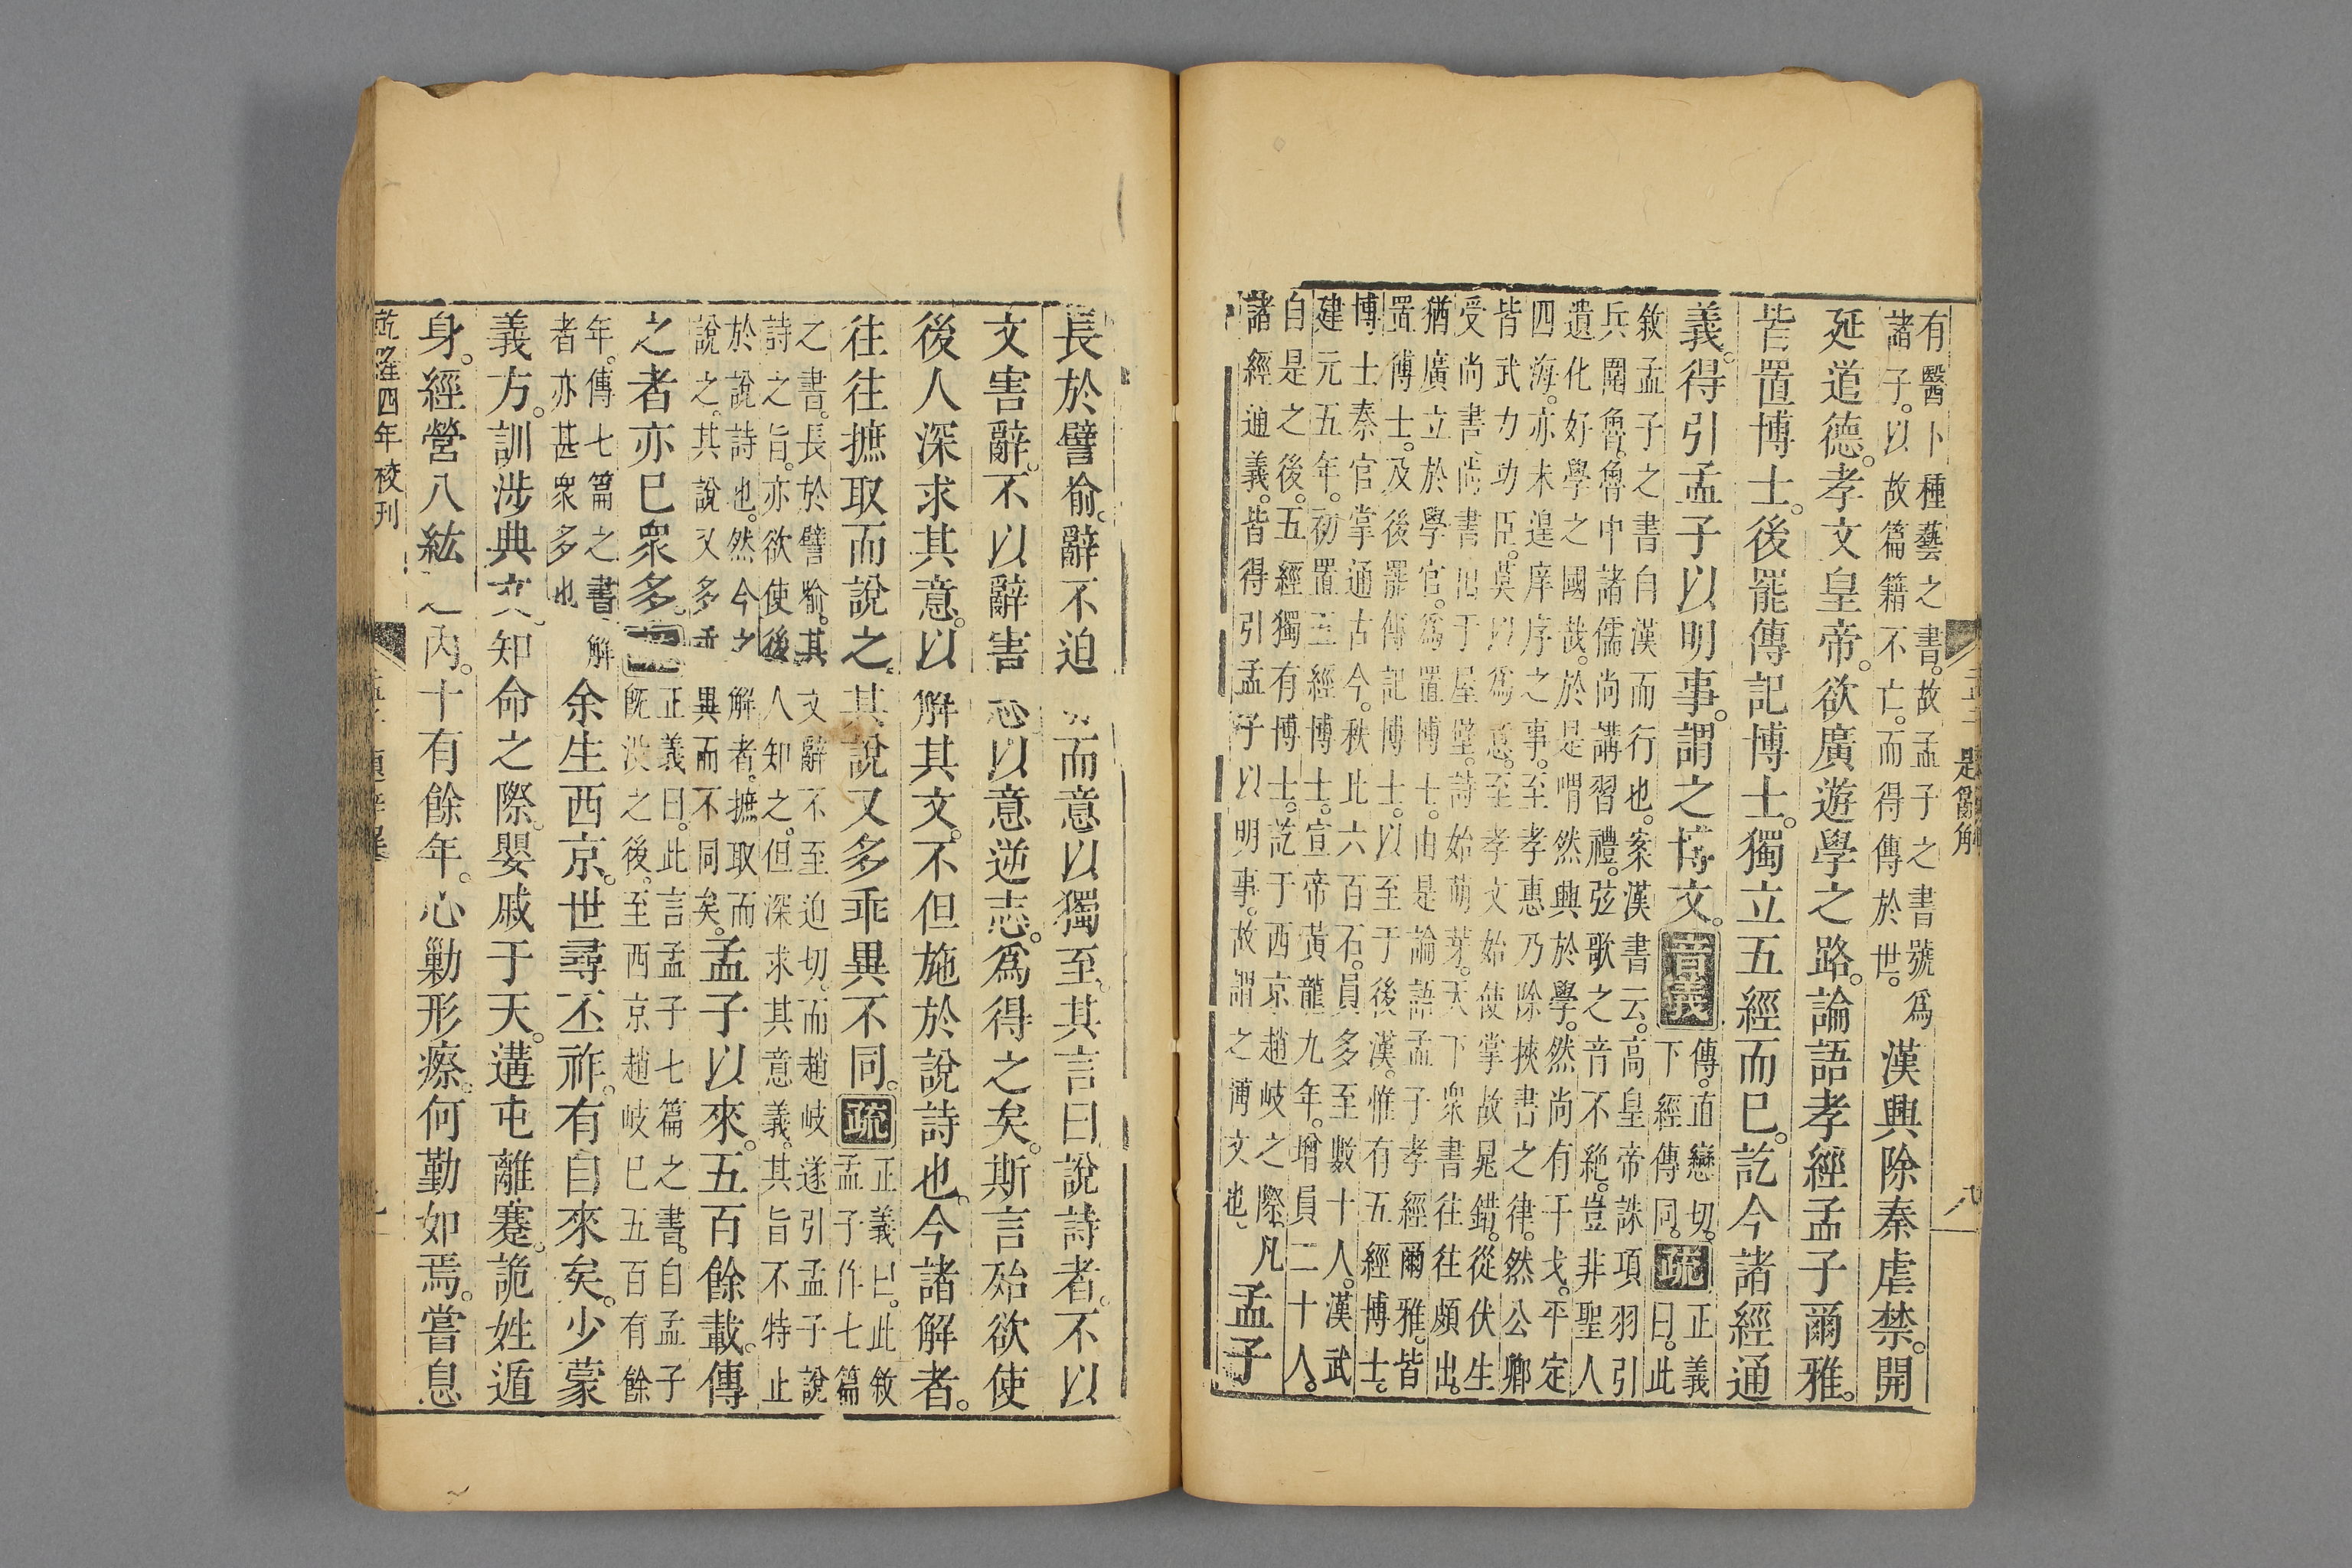 有醫卜種藝之書。故孟子之書號爲
諸子。以故篇籍不亡。而得傳於世。
漢興除秦虐禁。開
延道德。孝文皇帝。欲廣遊學之路。論語孝經孟子爾雅。
皆置博士。後罷傳記博士。獨立五經而已。訖今諸經通
義。得引孟子以明事。謂之博文。音義
傳。直戀切。
下經傳同。
疏
正義
曰。此
敘孟子之書自漢而行也。案漢書云。高皇帝誅項羽引
兵圍魯。魯中諸儒尚講習禮。弦歌之音不絕。豈非聖人
遺化好學之國哉。於是喟然興於學。然尚有干戈。平定
四海。亦未遑庠序之事。至孝惠乃除挾書之律。然公卿
皆武力功臣。莫以爲意。至孝文始使掌故晁錯。從伏生
受尚書。尚書出于屋壁。詩始萌芽。天下衆書往往頗出。
猶廣立於學官。爲置博士。由是論語孟子孝經爾雅。皆
置博士。及後罷傳記博士。以至于後漢。惟有五經博士。
博士秦官掌通古今。秩比六百石。員多至數十人。漢武
建元五年。初置五經博士。宣帝黃龍九年。增員二十人。
自是之後。五經獨有博士。訖于西京趙岐之際、凡
諸經通義。皆得引孟子以明事。故謂之博文也、
孟子
長於譬喻。辭不迫而意以獨至。其言曰說詩者。不以
文害辭。不以辭害志。以意逆志。爲得之矣。斯言殆欲使
後人深求其意。以解其文。不但施於說詩也。今諸解者。
往往摭取而說之。其說又多乖異不同。疏
正義曰。此敘
孟子作七篇
之書。長於譬喻。其文辭不至迫切。而趙岐遂引孟子說
詩之旨。亦欲使後人知之。但深求其意義。其旨不特止
於說詩也。然今之解者。摭取而
說之。其說又多乖異而不同矣。
孟子以來。五百餘載。傳
之者亦已衆多。疏
正義曰。此言孟子七篇之書。自孟子
既沒之後。至西京趙岐已五百有餘
年。傳七篇之書、解
者亦甚衆多也
余生西京。世尋丕祚。有自來矣。少蒙
義方。訓涉典文。知命之際。嬰戚于天。遘屯離蹇。詭姓遁
身。經營八紘之內。十有餘年。心勦形瘵。何勤如焉。嘗息
乾隆四年校刊